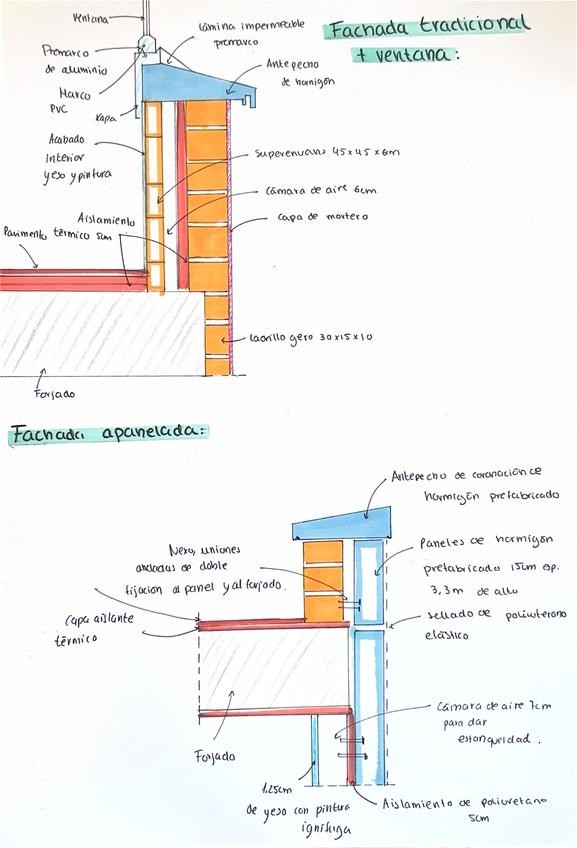 Fachada tradicional
+ ventana:
Ventana
Lámina impermeable
premarco
Premarco
de aluminio
Antepecho
de hormigón
Marco
PVC
Kapa
Acabado
interior
yeso y pintura
Supermahons 45x45x6m
Cámara de aire 6cm
Capa de mortero
Aislamiento
térmico 5cm
Pavimento
Ladrillo gero 30x15x10
Forjado
Fachada apanelada:
Antepecho de coronación de
hormigón prefabricado
Nexo, uniones
ancladas de doble
fijación al panel y al forjado.
Paneles de hormigón
prefabricado 15cm esp.
3,3m de alto
Capa aislante
térmico
sellado de poliuterano
elástico
Cámara de aire 7cm
para dar
estanqueidad.
Forjado
1,25cm
de yeso con pintura
ignífuga
Aislamiento de poliuretano
5cm